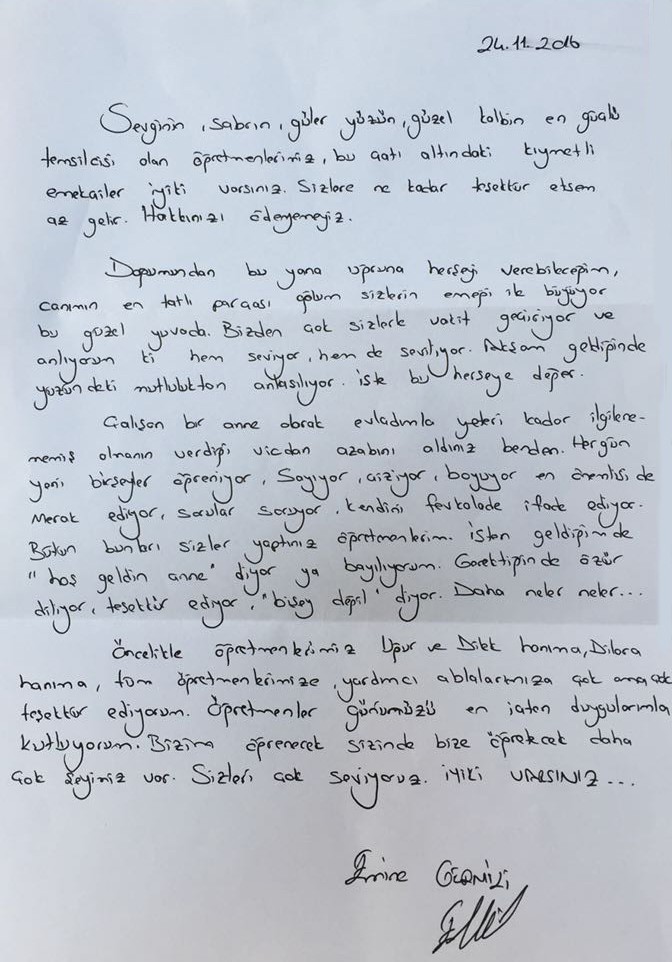 24.11.2016
Sevginin, sabrın, güler yüzün, güzel kalbin en güçlü
temsilcisi olan öğretmenlerimiz, bu çatı altındaki kıymetli
emekçiler iyiki varsınız. Sizlere ne kadar teşekkür etsem
az gelir. Hakkınızı ödeyemeyiz.
Doğumundan bu yana uğruna herşeyi verebileceğim,
canımın en tatlı parçası oğlum sizlerin emeği ile büyüyor
bu güzel yuvada. Bizden çok sizlerle vakit geçiriyor ve
anlıyorum ki hem seviyor, hem de seviliyor. Akşam geldiğinde
yüzündeki mutluluktan anlaşılıyor. işte bu herşeye değer.
Çalışan bir anne olarak evladımla yeteri kadar ilgilene-
memiş olmanın verdiği vicdan azabını aldınız benden. Hergün
yeni birşeyler öğreniyor, Sayıyor, çiziyor, boyuyor en önemlisi de
Merak ediyor, sorular soruyor, kendini fevkalade ifade ediyor.
Bütün bunları sizler yaptınız öğretmenlerim. işten geldiğimde
"hoş geldin anne" diyor ya bayılıyorum. Gerektiğinde özür
diliyor, teşekkür ediyor, "bişey değil" diyor. Daha neler neler...
Öncelikle öğretmenlerimiz Uğur ve Dilek hanıma, Dilara
hanıma, tüm öğretmenlerimize, yardımcı ablalarımıza çok ama çok
teşekkür ediyorum. Öğretmenler gününüzü en içten duygularımla
kutluyorum. Bizim öğrenecek sizinde bize öğretecek daha
çok şeyiniz var. Sizleri çok seviyoruz. iyiki VARSINIZ...
Emine